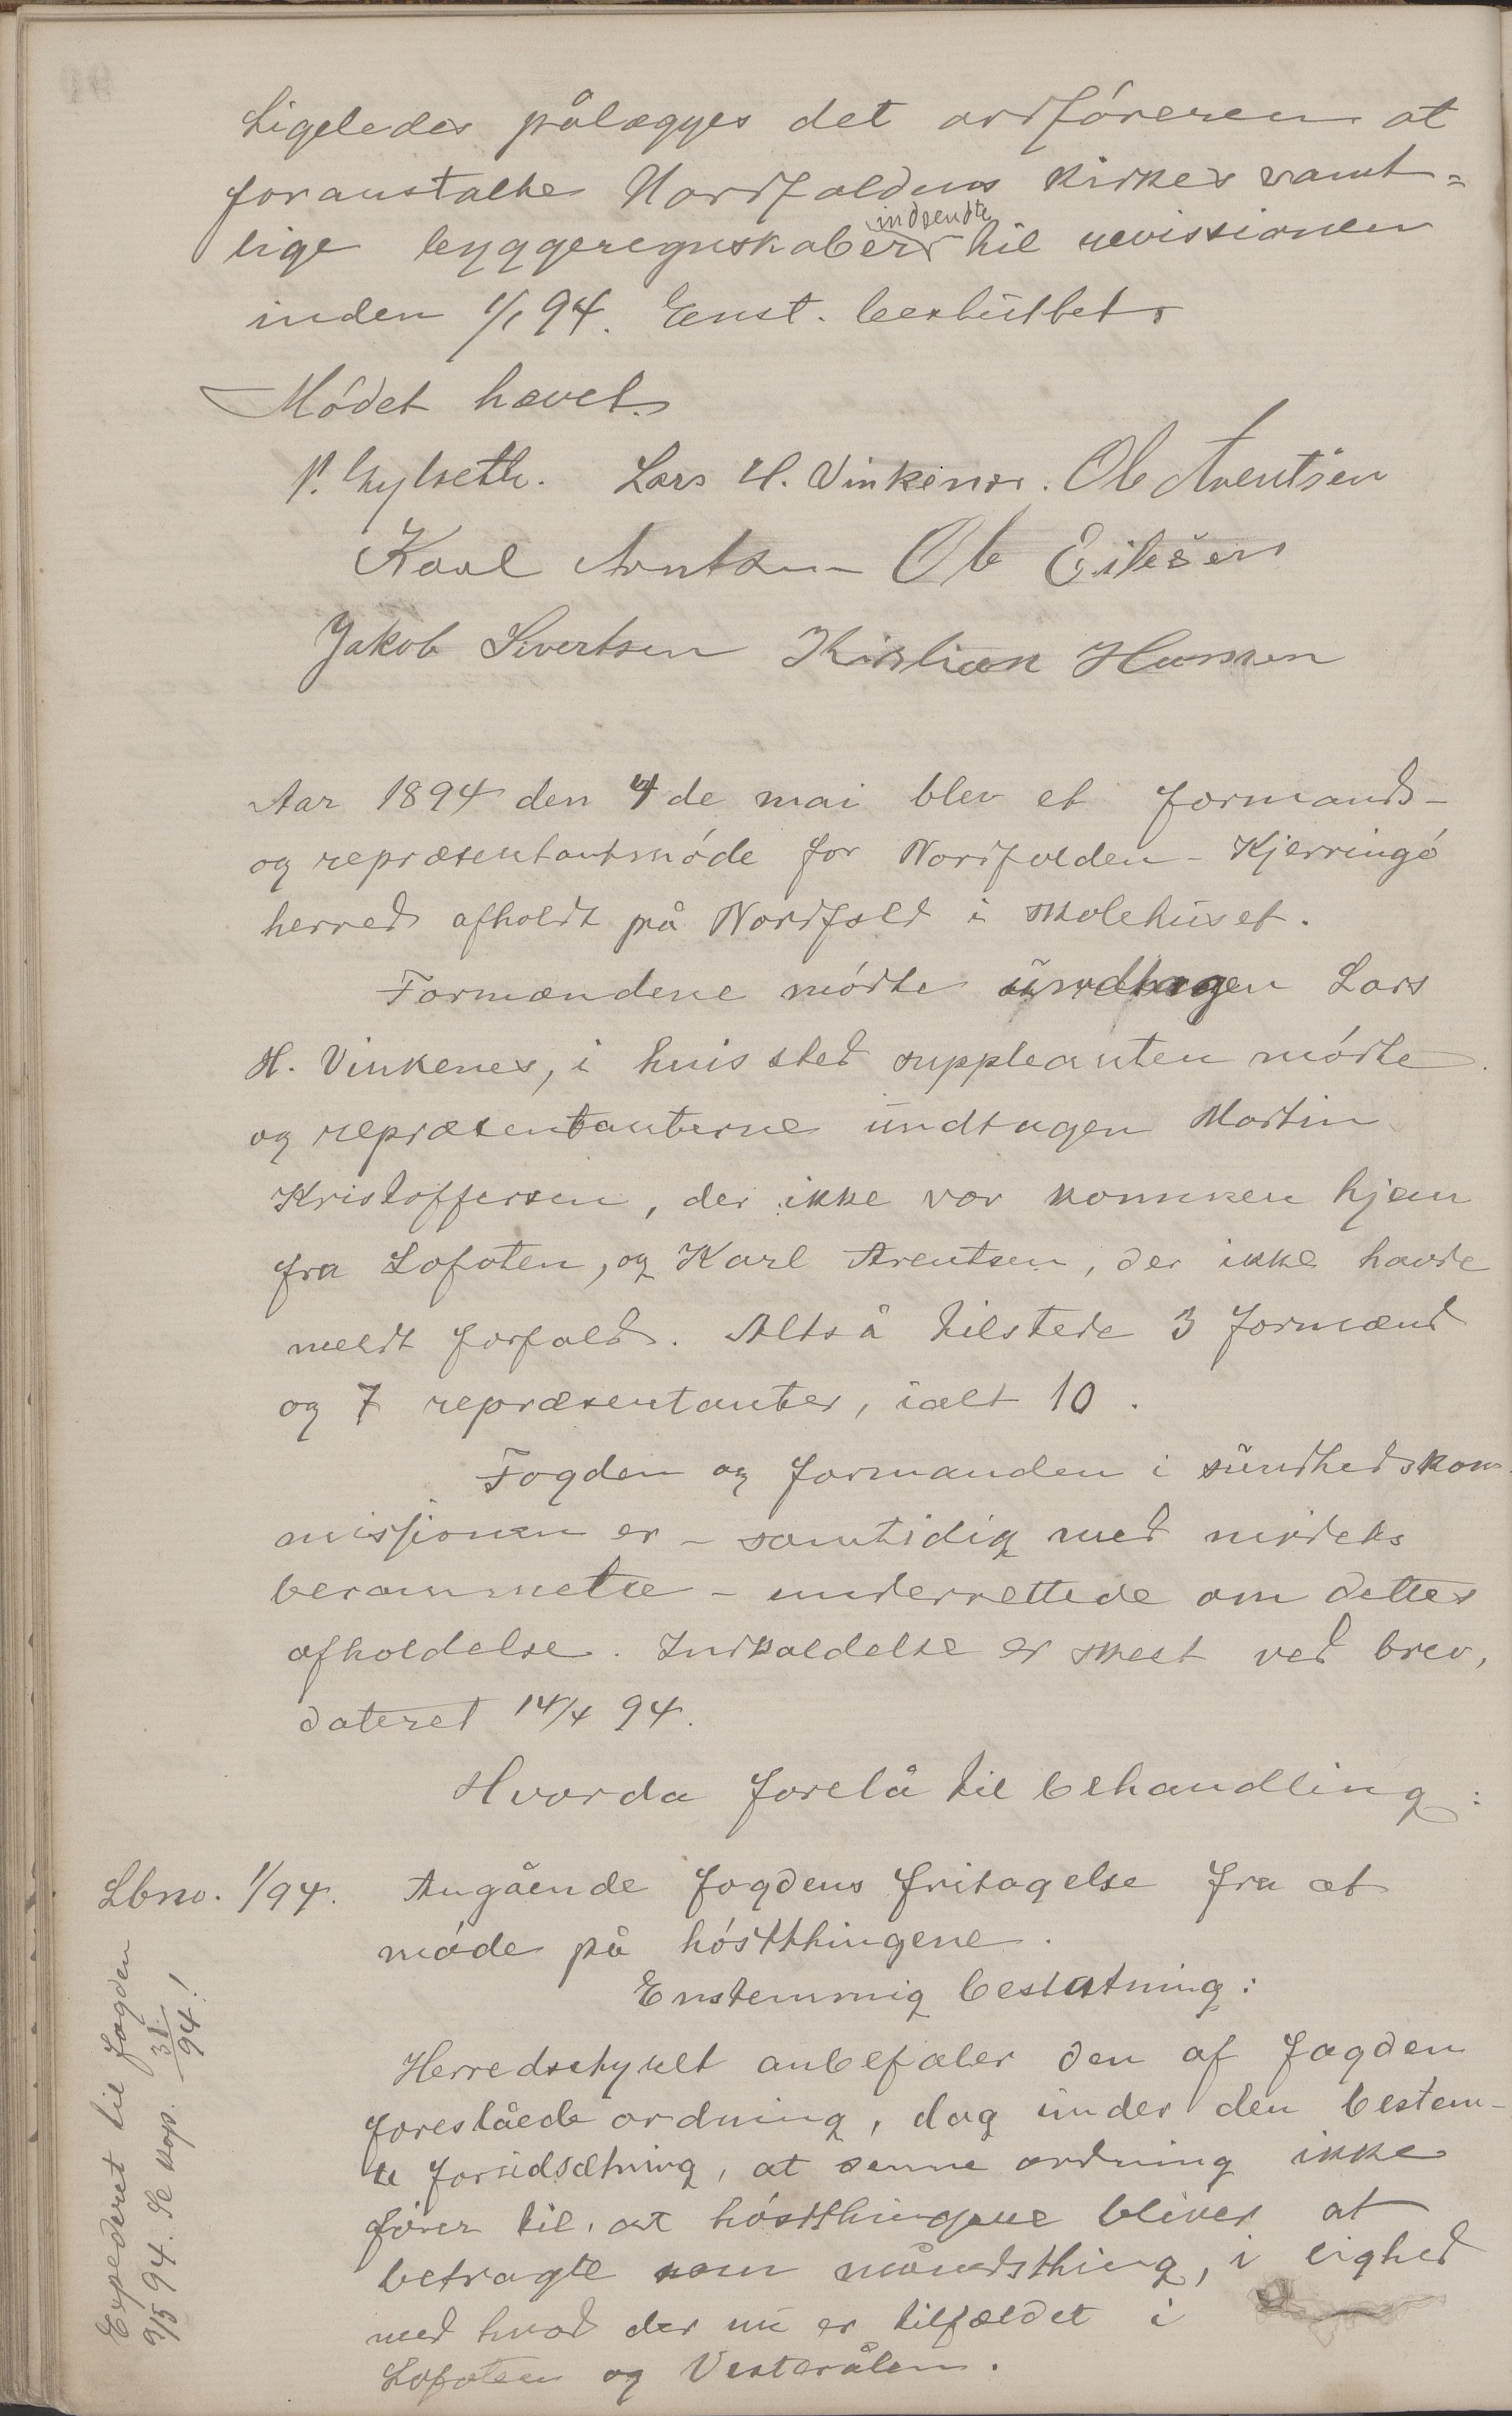 Ligeledes pålægges det ordføreren at
foranstalte Nordfoldens kirkes samt=
lige byggeregnskaber indsendte til revissionen
inden 1/1 94. Enst. besluttet.
Mødet hævet.
P. Gylseth. Lars H. Vinkenes. Ole Arentsen
Karl Arntsen Ole Eilesen
Jakob Sivertsen Kristian Hansen
Aar 1894 den 4de mai blev et formands-
og repræsentantmøde for Nordfolden-Kjerringø
herred afholdt på Nordfold i skolehuset.
Formændene mødte undtagen Lars
H. Vinkenes, i hvis sted suppleanten mødte
og repræsentanterne undtagen Martin
Kristoffersen, der ikke var kommen hjem
fra Lofoten, og Karl Arentsen, der ikke havde
meldt forfald. Altså tilstede 3 formænd
og 7 repræsentanter, ialt 10.
Fogden og formanden i sundhedskom-
missjonen er - samtidig med mødets
berammelse - underrettede om dettes
afholdelse. Indkaldelse er skeet ved brev,
dateret 14/4 94.
Hvorda forelå til behandling:
Lbno. 1/94. Angående fogdens fritagelse fra at
møde på høstthingene.
Enstemmig beslutning:
Herredsstyret anbefaler den af fogden
foreslåede ordning, dog under den bestem-
te forudsætning, at denne ordning ikke
fører til, at høstthingene bliver at
betragte som måndsthing, i lighed
med hvad der nu er tilfældet i
Lofoten og Vesterålen.
Expederet til fogden
9/5 94. Se kop. 31/94!